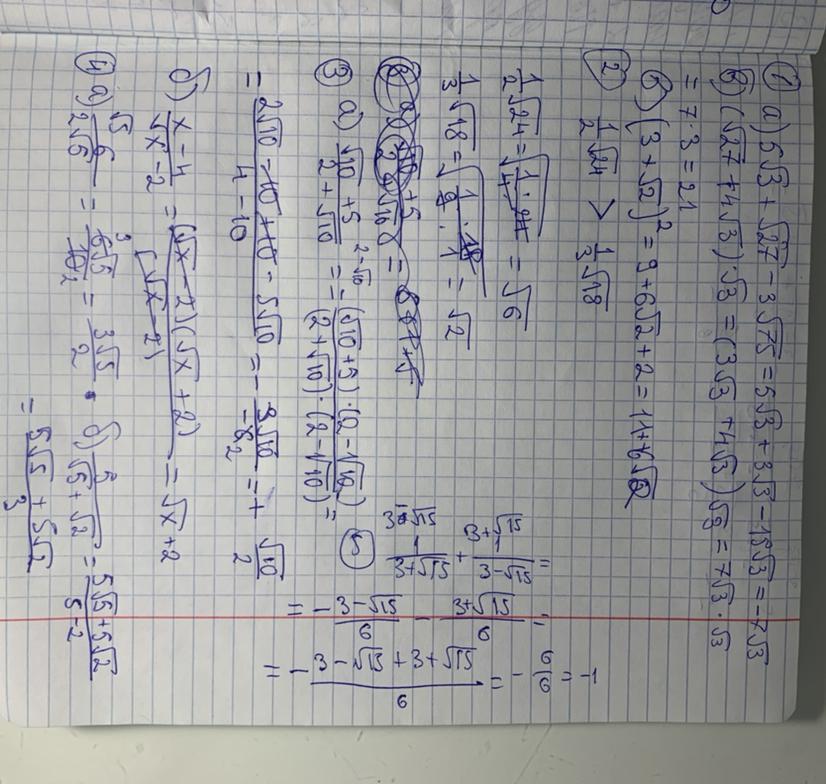 ① а) 5√3 + √27 − 3√75 = 5√3 + 3√3 − 15√3 = −7√3
б) (√27 + 4√3)·√3 = (3√3 + 4√3)√3 = 7√3·√3
= 7·3 = 21
в) (3 + √2)² = 9 + 6√2 + 2 = 11 + 6√2
② 1/2√24 > 1/3√18
1/2√24 = √(1/4·24) = √6
1/3√18 = √(1/9·18/1) = √2
③ а) (√10 + 5)/(2 + √10) ^(2−√10) = ((√10 + 5)·(2 − √10))/((2 + √10)·(2 − √10)) =
= (2√10 − 10 + 10 − 5√10)/(4 − 10) = − 3√10/−6₂ = + √10/2
б) (x − 4)/(√x − 2) = ((√x − 2)(√x + 2))/(√x − 2) = √x + 2
④ а) ^√5 6/2√5 = 6³√5/10₂ = 3√5/2. б) 5/(√5 + √2) = (5√5 + 5√2)/(5 − 2)
= (5√5 + 5√2)/3
⑤ ^(3−√15) 1/(3+√15) + ^(3+√15) 1/(3−√15) =
= − (3−√15)/6 − (3+√15)/6 =
= − (3 − √15 + 3 + √15)/6 = − 6/6 = −1